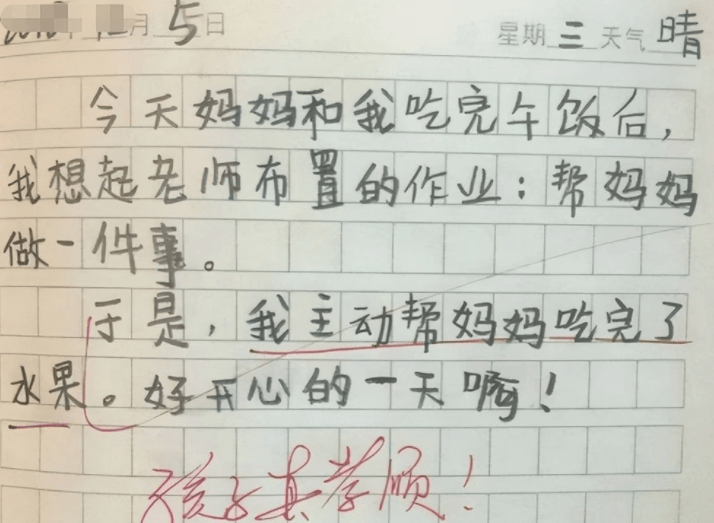 月5日 星期三 天气晴
今天妈妈和我吃完午饭后，
我想起老师布置的作业：帮妈妈
做一件事。
于是，我主动帮妈妈吃完了
水果。好开心的一天啊！
孩子真孝顺！